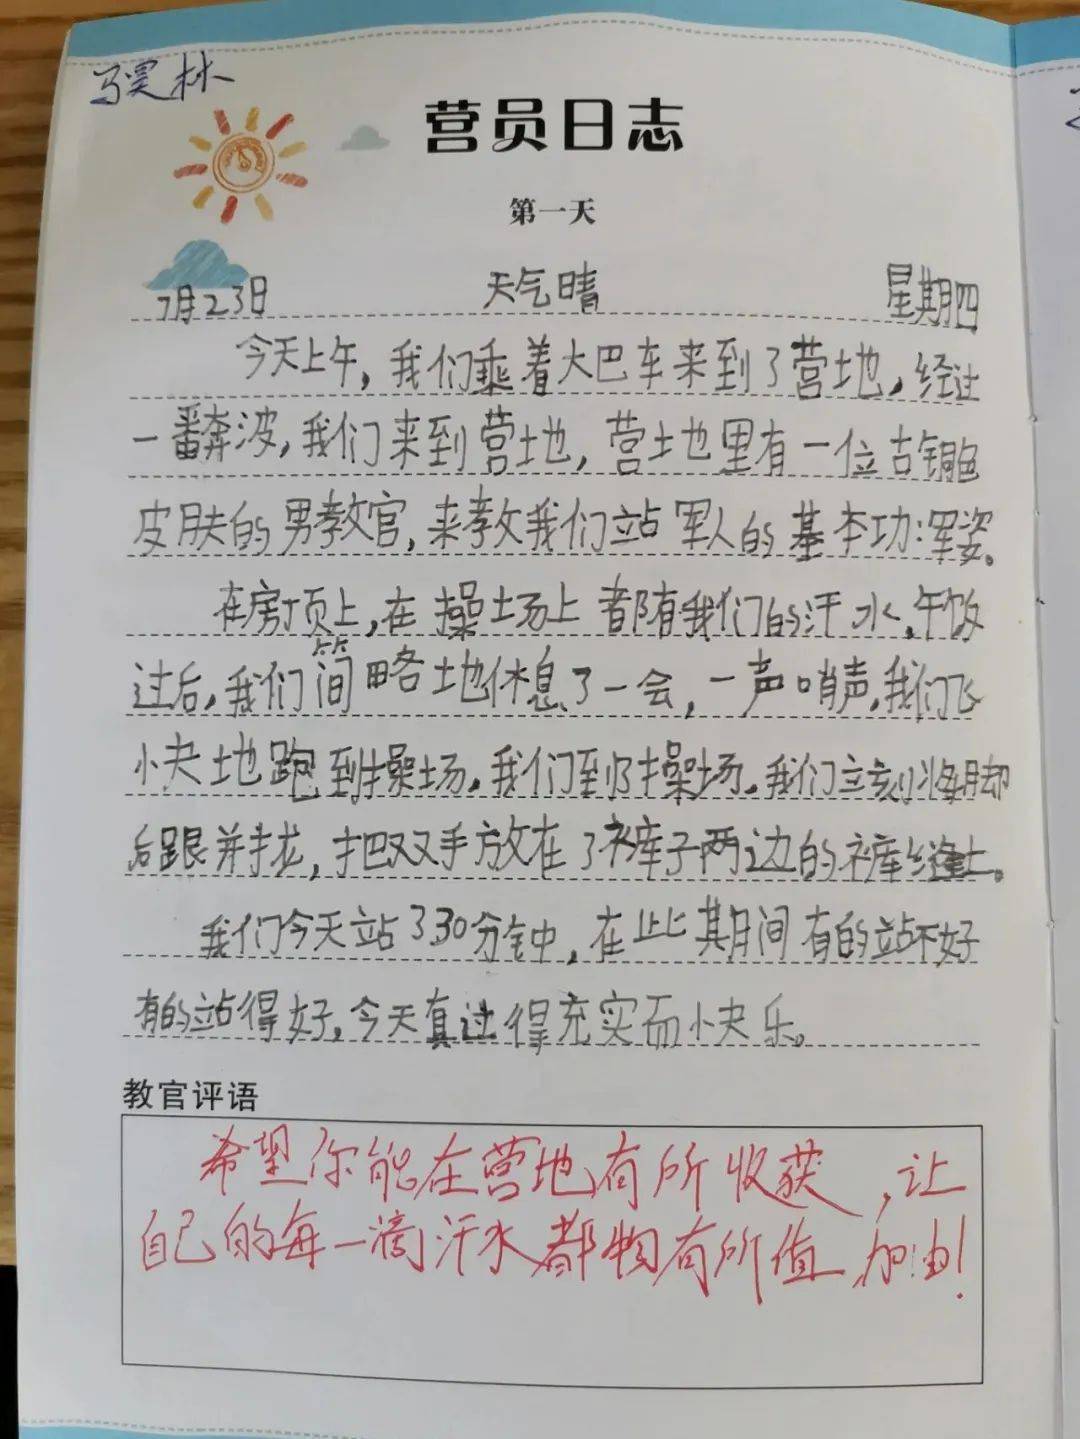 马昊林
营员日志
第一天
7月23日 天气晴 星期四
今天上午，我们乘着大巴车来到了营地，经过
一番奔波，我们来到营地，营地里有一位古铜色
皮肤的男教官，来教我们站军人的基本功：军姿。
在房顶上，在操场上都有我们的汗水，午饭
过后，我们简略地休息了一会，一声哨声，我们飞
快地跑到操场。我们到了操场。我们立刻将脚
后跟并拢，把双手放在了裤子两边的裤缝上。
我们今天站了30分钟，在此期间有的站不好
有的站得好，今天真过得充实而快乐。
教官评语
希望你能在营地有所收获，让
自己的每一滴汗水都物有所值，加油！